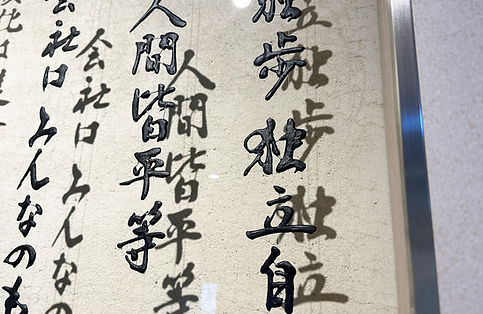 独歩独立自
人間皆平等
会社はみんなのも